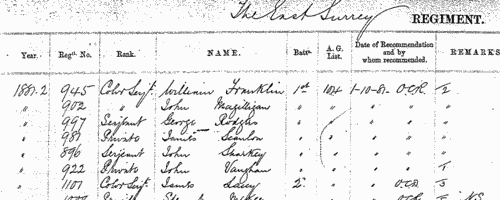 The East Surrey REGIMENT.
Year. Regtl. No. Rank. NAME. Battn. A. G. List. Date of Recommendation and by whom recommended. REMARKS
1881-2 945 Color Serjt. William Franklin 1st 104 1-10-81 O.C.R. 2
" 902 " John Magilligan " " " " "
" 997 Serjeant George Rodgers " " " "
" 981 Private James Scanlon " " " "
" 896 Serjeant John Sharkey " " " "
" 922 Private John Vaughan " " " " 1
" 1101 Color Serjt. James Lacey 2 " " O.C.R. 3